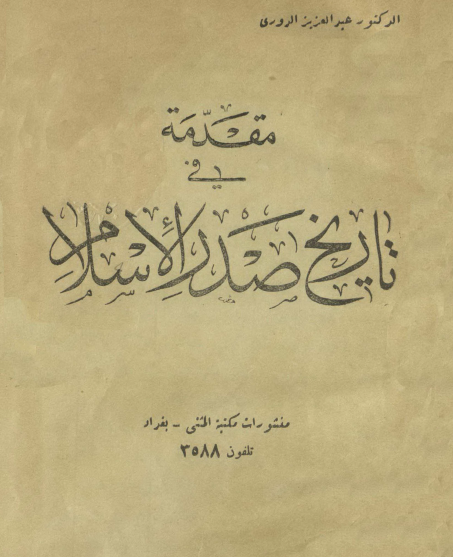 الدكتور عبدالعزيز الدوري
مقدّمة
في
تاريخ صَدر الإسلام
منشورات مكتبة المثنى - بغداد
تلفون ٣٥٨٨